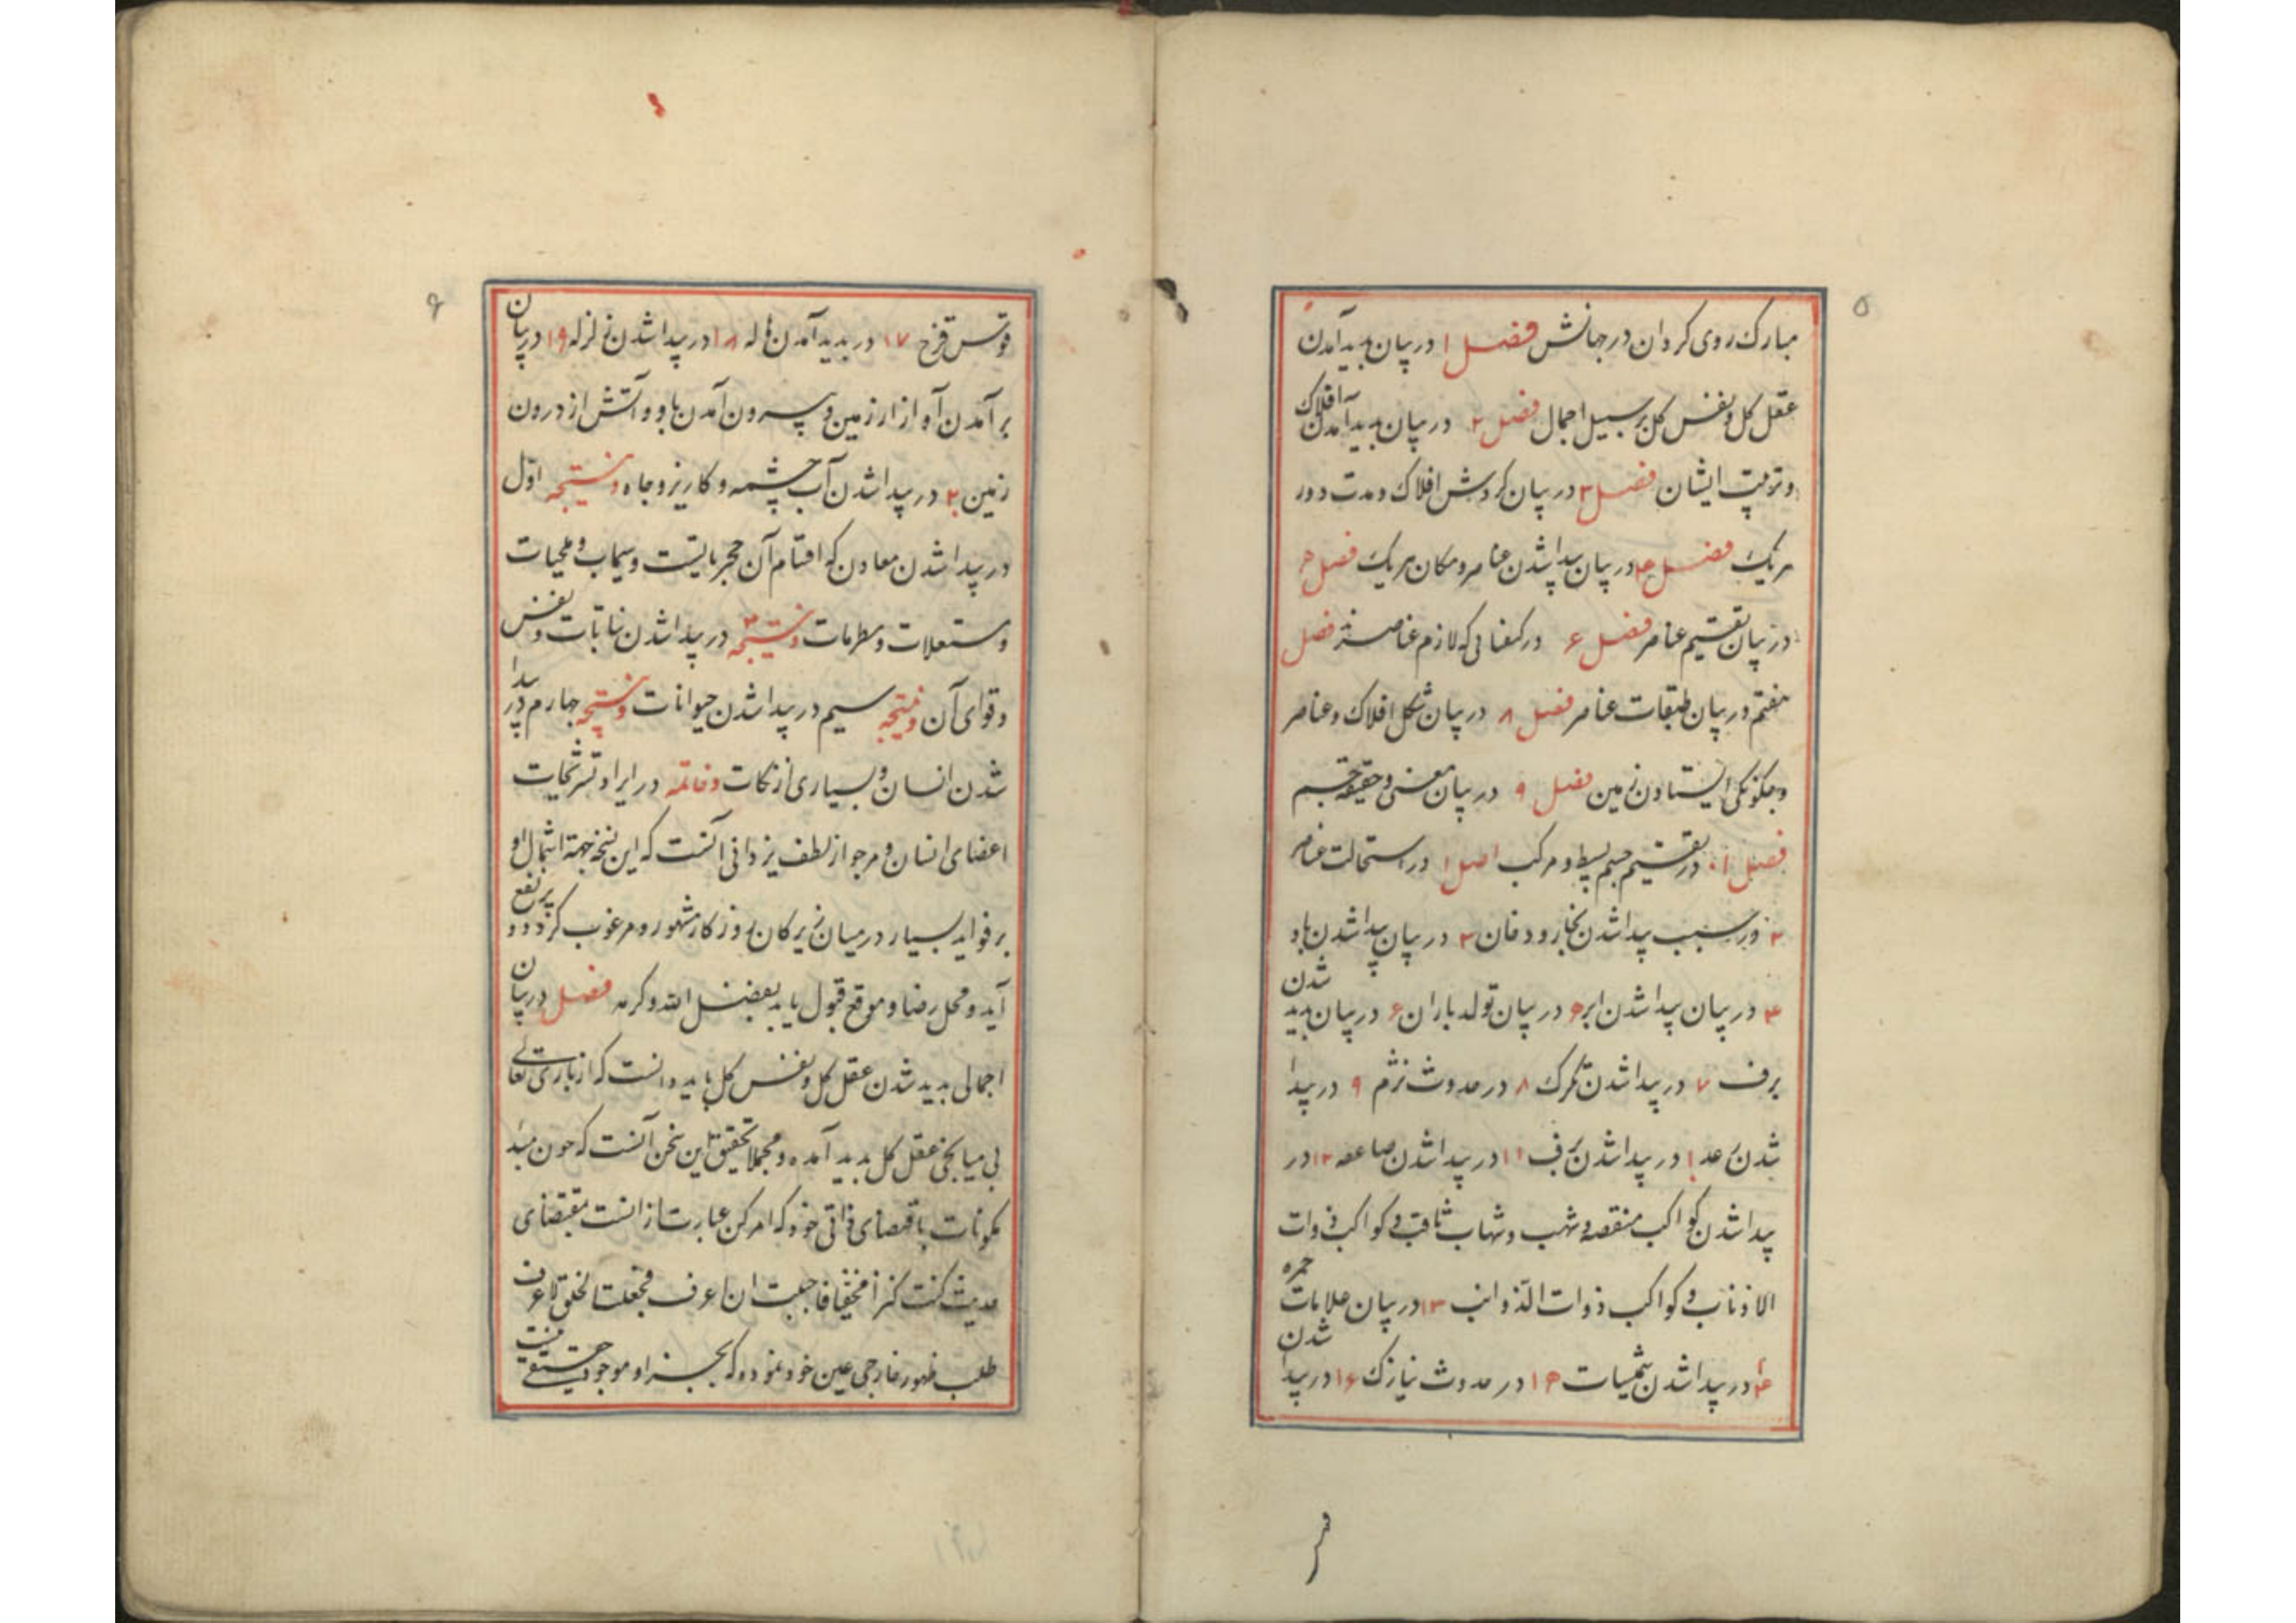 ۵
مبارک روی کردان در جهانش فصل ۱ در بیان پدید آمدن
عقل کل و نفس کل بر سبیل اجمال فصل ۲ در بیان پدید آمدن افلاک
و ترتیب ایشان فصل ۳ در بیان کردش افلاک و مدت دور
هر یک فصل ۴ در بیان پیدا شدن عناصر و مکان هر یک فصل ۵
در بیان تقسیم عناصر فصل ۶ در کیفیاتی که لازم عناصرند فصل
هفتم در بیان طبقات عناصر فصل ۸ در بیان شکل افلاک و عناصر
و چکونکی ایستادن زمین فصل ۹ در بیان معنی و حقیقة جسم
فصل ۱۰ در تقسیم جسم بسیط و مرکب اصل ۱ در استحالت عناصر
۲ در سبب پیدا شدن بخار و دخان ۳ در بیان پیدا شدن باد
۴ در بیان پیدا شدن ابر ۵ در بیان تولد باران ۶ در بیان پدید شدن
برف ۷ در پیدا شدن تکرک ۸ در حدوث نژم ۹ در پیدا
شدن رعد ۱۰ در پیدا شدن برق ۱۱ در پیدا شدن صاعقه ۱۲ در
پیدا شدن کواکب منقضه و شهب و شهاب ثاقب و کواکب ذوات
الاذناب و کواکب ذوات الذوائب ۱۳ در بیان علامات حمره
۱۴ در پیدا شدن شمسیات ۱۵ در حدوث نیازک ۱۶ در پیدا شدن
۶
قوس قزح ۱۷ در پدید آمدن هاله ۱۸ در پیدا شدن زلزله ۱۹ در بیان
بر آمدن آواز از زمین و بیرون آمدن باد و آتش از درون
زمین ۲۰ در پیدا شدن آب چشمه و کاریز و چاه و نتیجه اول
در پیدا شدن معادن که اقسام آن حجریاتست و سیماب و ملحیات
و مشتعلات و منطرقات و نتیجه ۲ در پیدا شدن نباتات و نفس
و قوای آن و نتیجه سیم در پیدا شدن حیوانات و نتیجه چهارم در پیدا
شدن انسان و بسیاری از نکات و خاتمه در ایراد تشریحات
اعضای انسان و مرجو از لطف یزدانی آنست که این نسخه جهة اشتمال او
بر فواید بسیار در میان زیرکان روزکار مشهور و مرغوب کردد و پر نفع
آید و محل رضا و موقع قبول یابد بفضل الله و کرمه فصل در بیان
اجمالی پدید شدن عقل کل و نفس کل باید دانست که از باری تعالی
بی میانجی عقل کل پدید آمده و مجملا تحقیق این سخن آنست که چون مبدأ
مکونات باقتضای ذاتی خود که امر کن عبارت از انست مقتضای
حدیث کنت کنزا مخفیا فاحببت ان اعرف فخلقت الخلق لاعرف
طلب ظهور خارجی عین خود نمود که بجز او موجود حقیقی نیست